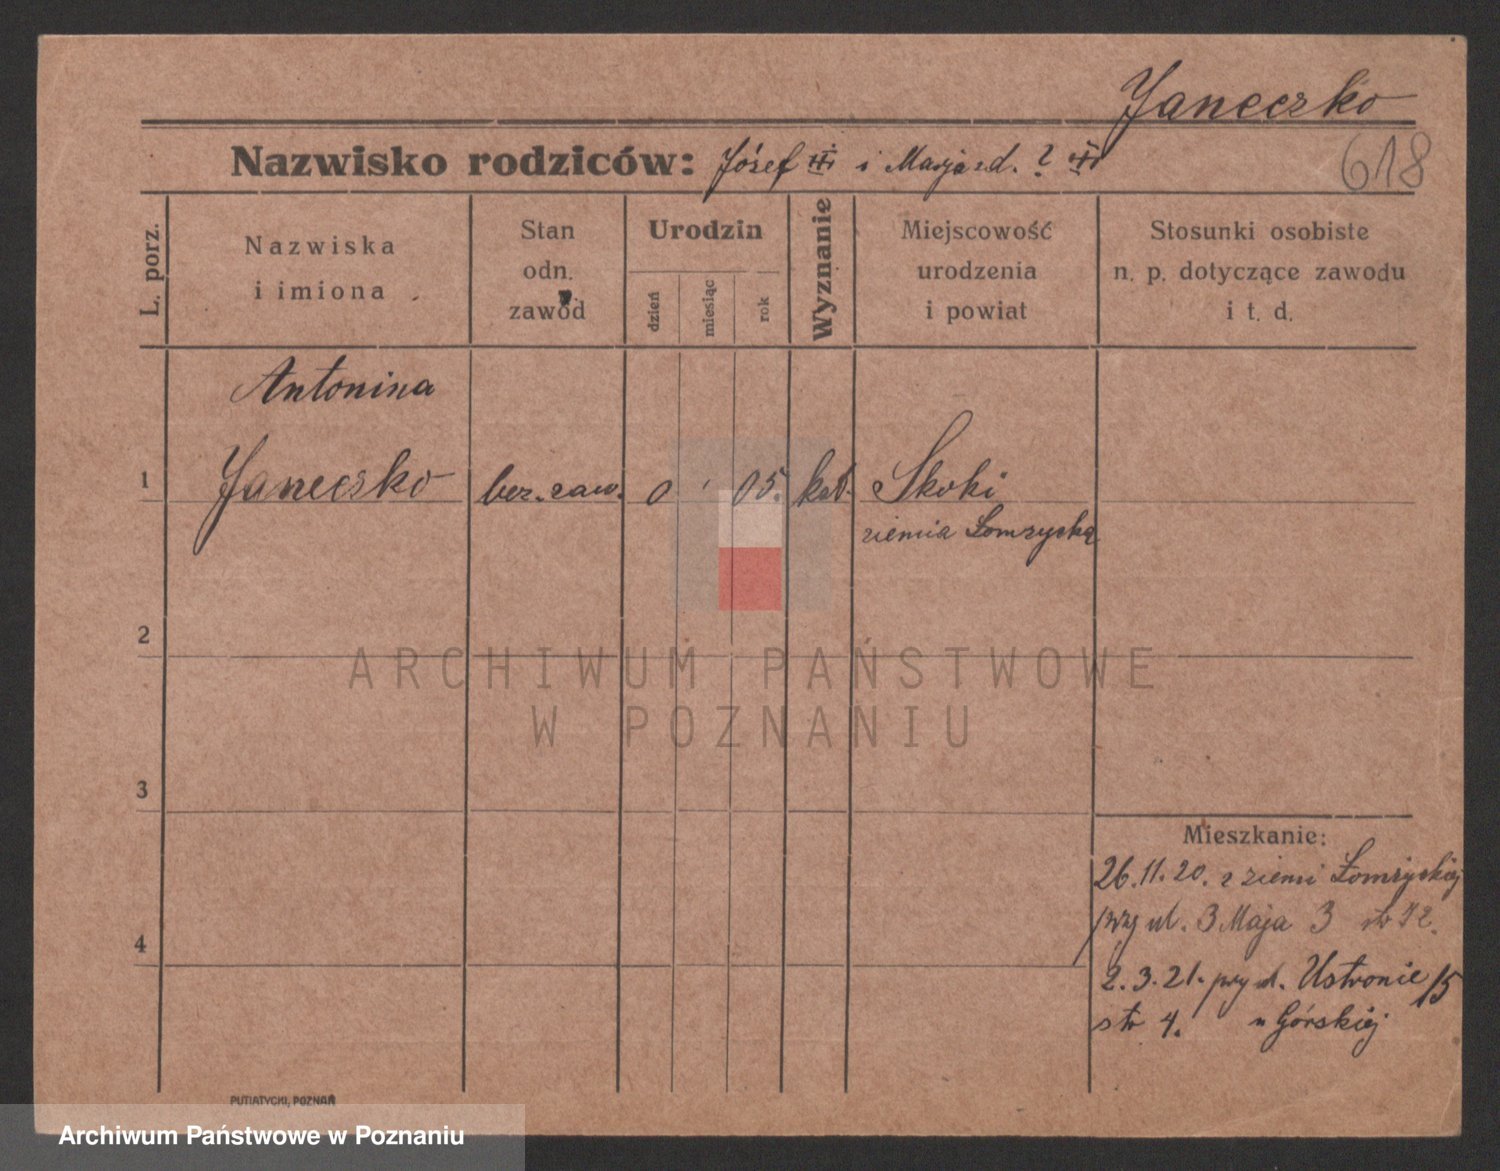 Janeczko
618
Nazwisko rodziców: Józef i Marja zd. ?
L. porz.
Nazwiska
i imiona
Stan
odn.
zawód
Urodzin
dzień
miesiąc
rok
Wyznanie
Miejscowość
urodzenia
i powiat
Stosunki osobiste
n. p. dotyczące zawodu
i t. d.
Antonina
1 Janeczko bez. zaw. 0 05. kat. Skoki
ziemia Łomzyska
2
ARCHIWUM PAŃSTWOWE
W POZNANIU
3
Mieszkanie:
26.11.20. z ziemi Łomżyskiej
przy ul. 3 Maja 3
4
2.3.21. przy ul. Ustronie 15
str 4. u Górskiej
PUTIATYCKI, POZNAŃ
Archiwum Państwowe w Poznaniu